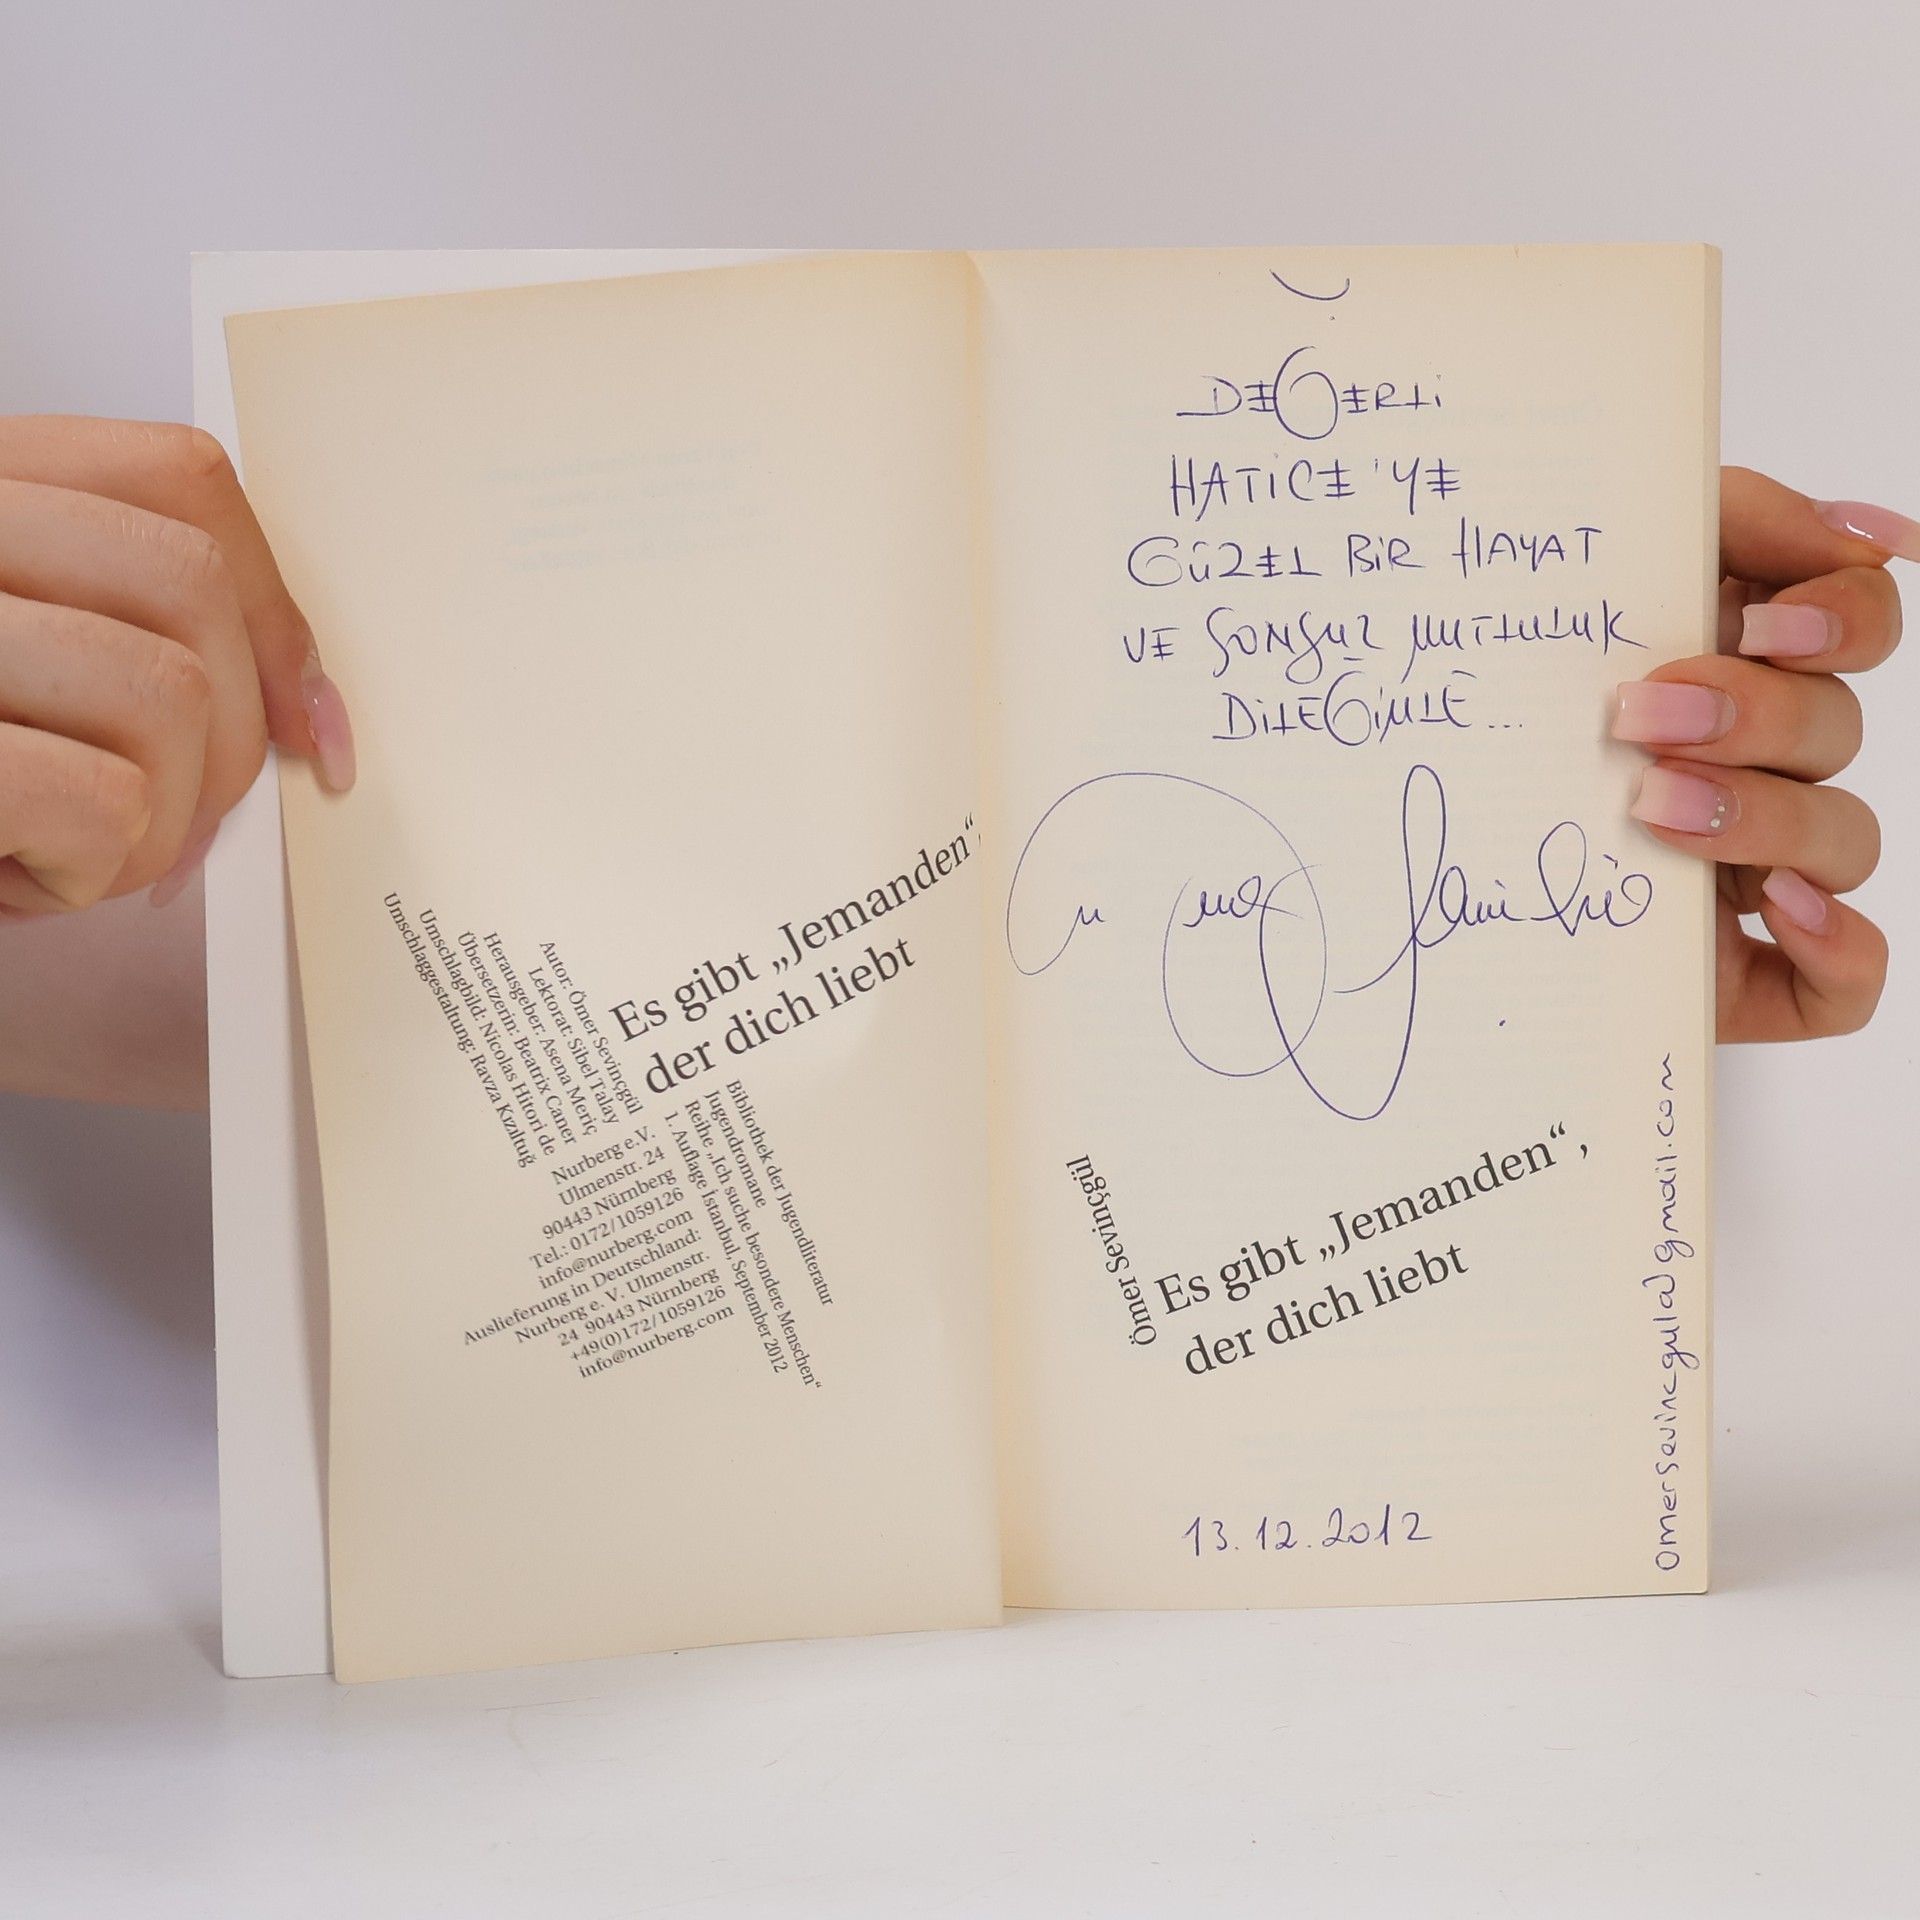 Es gibt „Jemanden“,
der dich liebt
Autor: Ömer Sevinçgül
Lektorat: Sibel Talay
Herausgeber: Asena Meriç
Übersetzerin: Beatrix Caner
Umschlagbild: Nicolas Hitori de
Umschlaggestaltung: Ravza Kızıltuğ
Nurberg e.V.
Ulmenstr. 24
90443 Nürnberg
Tel.: 0172/1059126
info@nurberg.com
Auslieferung in Deutschland:
Nurberg e. V. Ulmenstr.
24 90443 Nürnberg
+49(0)172/1059126
info@nurberg.com
Bibliothek der Jugendliteratur
Jugendromane
Reihe „Ich suche besondere Menschen“
1. Auflage İstanbul, September 2012
DEĞERLİ
HATİCE'YE
GÜZEL BİR HAYAT
VE SONSUZ MUTLULUK
DİLEĞİMLE...
Ömer Sevinçgül
Es gibt „Jemanden“,
der dich liebt
13.12.2012
omersevincgul@gmail.com